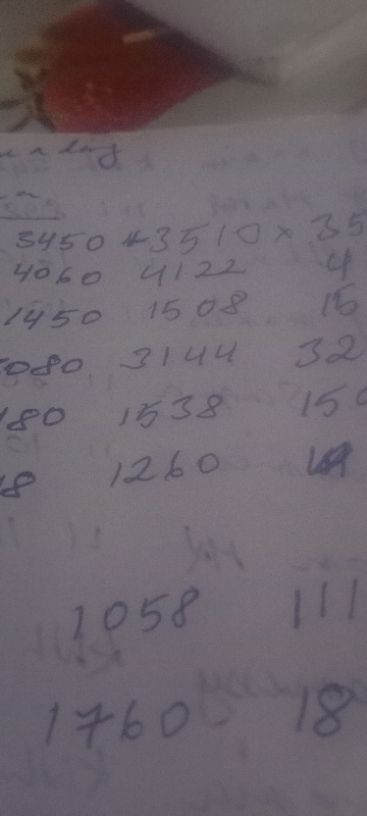 3450 + 3510 x 35
4060 4122 4
1450 1508 15
080 3144 32
180 1538 150
18 1260
1058 111
1760 18